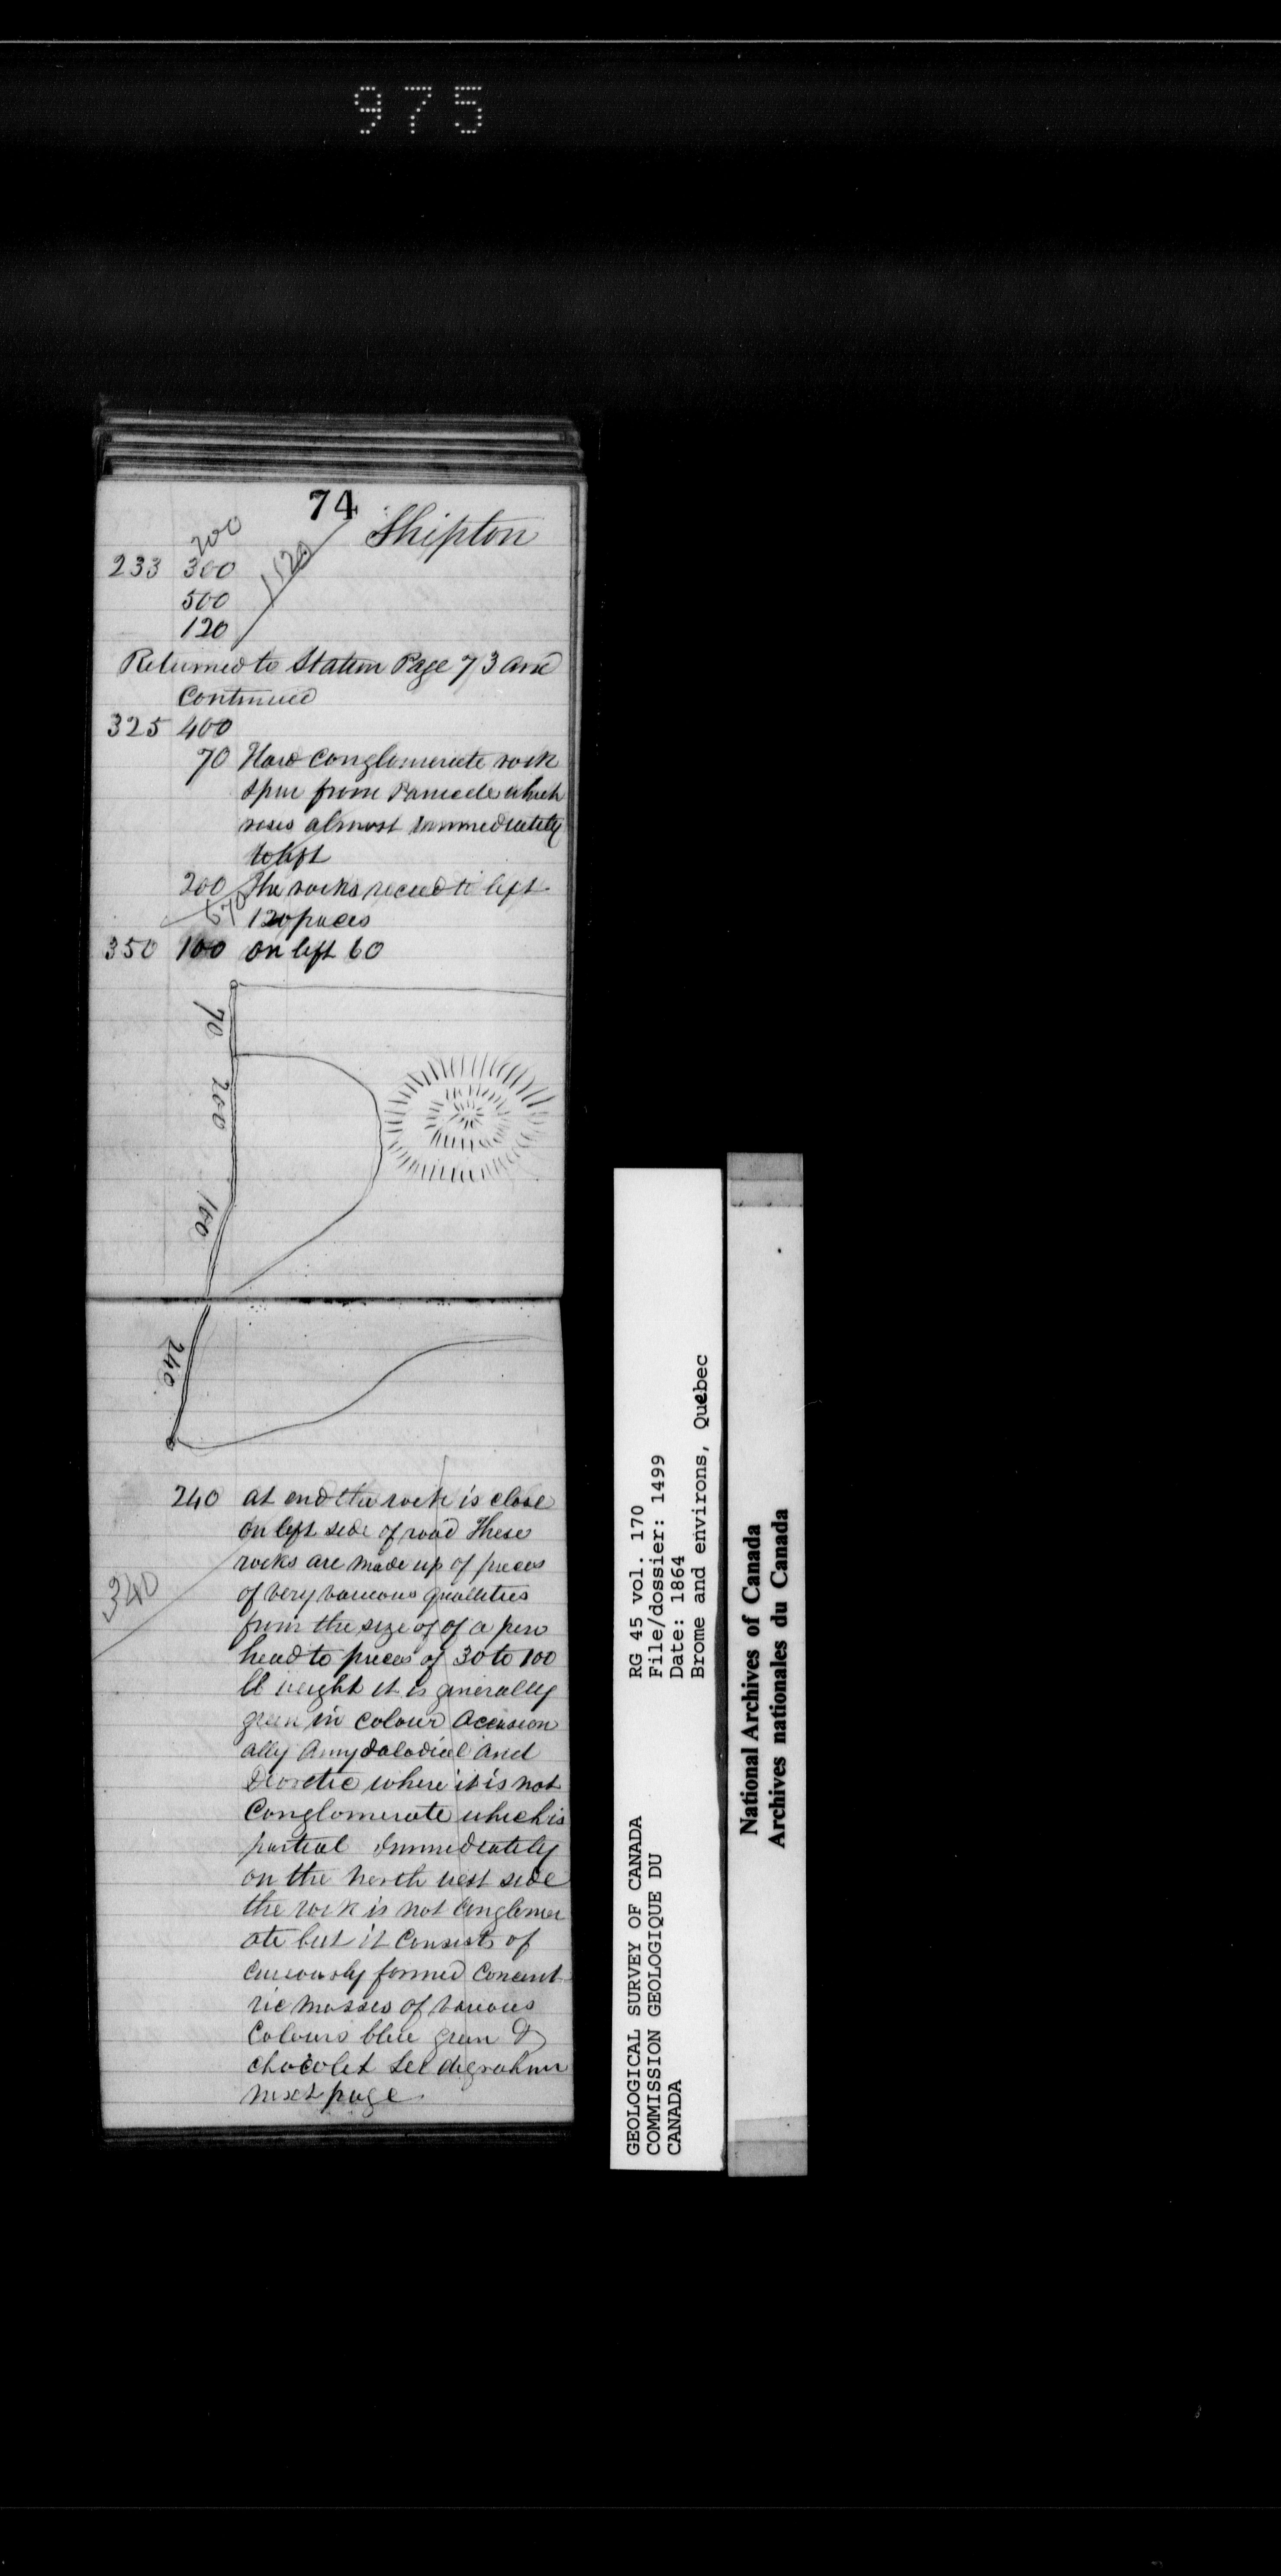 975
74
Shipton
200
233 300 1120
500
120
Returned to Station Page 73 and
Continued
325 400
70 Hard Conglomerate rock
spur from Pinnacle which
rises almost immediately
to left
200 The rocks recede to left
670 120 paces
350 100 on left 60
70
200
100
240
240 at end the rock is close
on left side of road These
rocks are made up of pieces
of very various quallities
from the size of of a pin
head to pieces of 30 to 100
lb weight it is generally
green in colour Occasion
ally Amydalodial and
Dioretic where it is not
Conglomerate which is
partial Immediately
340
on the north west side
the rock is not Conglomer
ate but it Consists of
Curiously formed Concent
ric masses of various
Colours blue green &
chocolet See diagrahm
next page
RG 45 vol. 170
File/dossier: 1499
Date: 1864
Brome and environs, Québec
GEOLOGICAL SURVEY OF CANADA
COMMISSION GEOLOGIQUE DU
CANADA
National Archives of Canada
Archives nationales du Canada